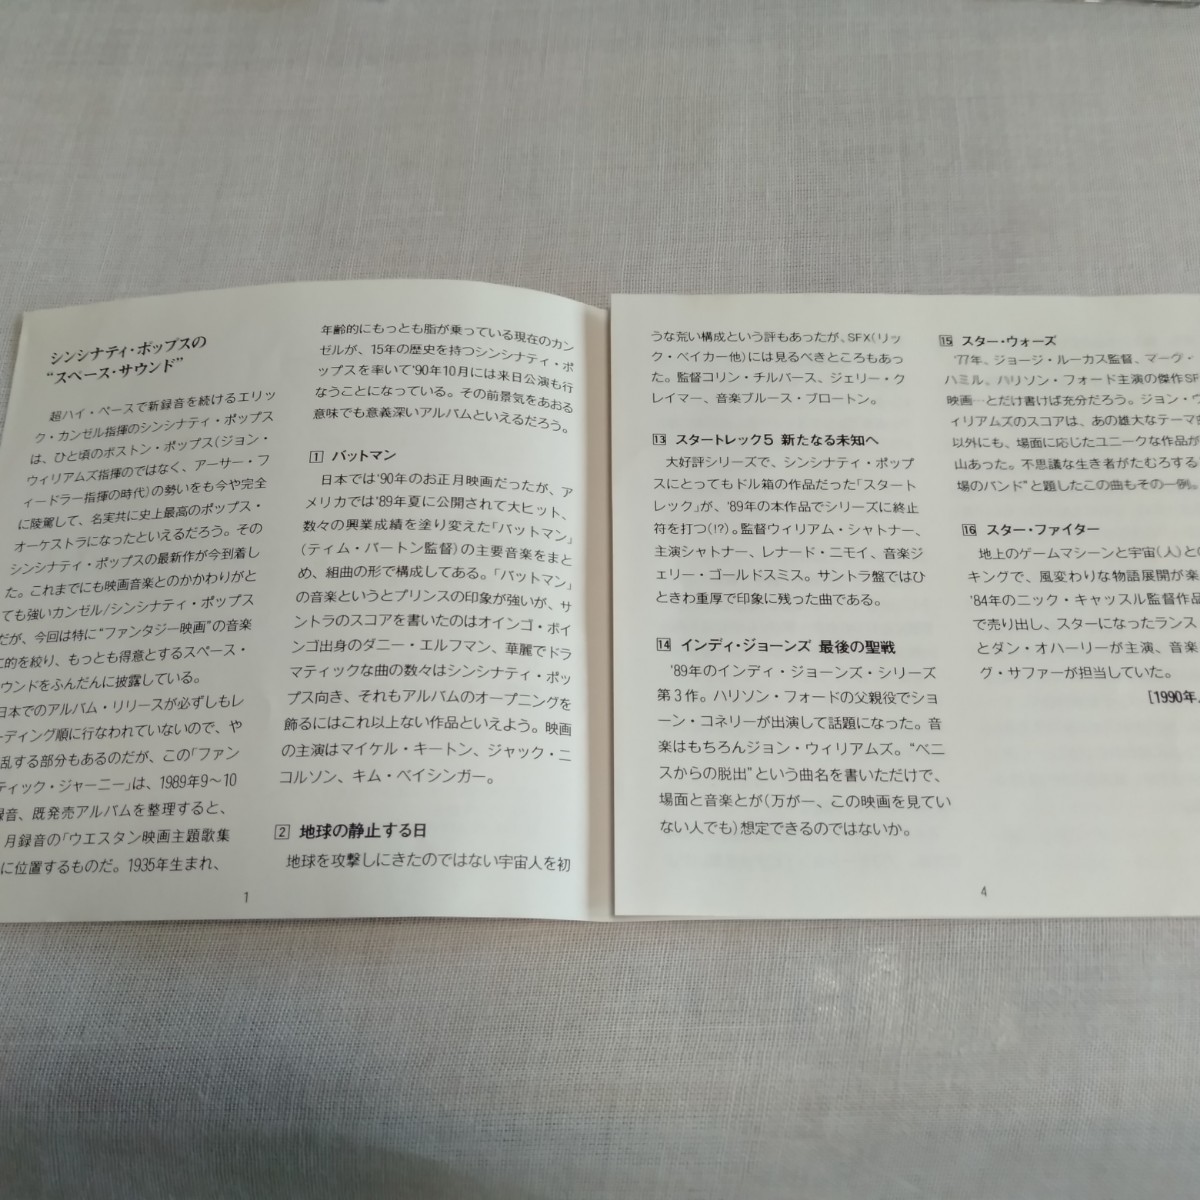 シンシナティ・ポップスの
“スペース・サウンド”
超ハイ・ペースで新録音を続けるエリッ
ク・カンゼル指揮のシンシナティ・ポップス
は、ひと頃のボストン・ポップス(ジョン・
ウィリアムズ指揮のではなく、アーサー・フ
ィードラー指揮の時代)の勢いをも今や完全
に陵駕して、名実共に史上最高のポップス・
オーケストラになったといえるだろう。その
シンシナティ・ポップスの最新作が今到着し
た。これまでにも映画音楽とのかかわりがと
ても強いカンゼル/シンシナティ・ポップス
だが、今回は特に“ファンタジー映画”の音楽
に的を絞り、もっとも得意とするスペース・
ウンドをふんだんに披露している。
日本でのアルバム・リリースが必ずしもレ
ーディング順に行なわれていないので、や
乱する部分もあるのだが、この「ファン
ティック・ジャーニー」は、1989年9〜10
録音、既発売アルバムを整理すると、
月録音の「ウエスタン映画主題歌集
に位置するものだ。1935年生まれ、
1
年齢的にもっとも脂が乗っている現在のカン
ゼルが、15年の歴史を持つシンシナティ・ポ
ップスを率いて'90年10月には来日公演も行
なうことになっている。その前景気をあおる
意味でも意義深いアルバムといえるだろう。
1 バットマン
日本では'90年のお正月映画だったが、ア
メリカでは'89年夏に公開されて大ヒット、
数々の興業成績を塗り変えた「バットマン」
(ティム・バートン監督)の主要音楽をまと
め、組曲の形で構成してある。「バットマン」
の音楽というとプリンスの印象が強いが、サ
ントラのスコアを書いたのはオインゴ・ボイ
ンゴ出身のダニー・エルフマン、華麗でドラ
マティックな曲の数々はシンシナティ・ポッ
プス向き、それもアルバムのオープニングを
飾るにはこれ以上ない作品といえよう。映画
の主演はマイケル・キートン、ジャック・ニ
コルソン、キム・ベイシンガー。
2 地球の静止する日
地球を攻撃しにきたのではない宇宙人を初
うな荒い構成という評もあったが、SFX(リッ
ク・ベイカー他)には見るべきところもあっ
た。監督コリン・チルバース、ジェリー・ク
レイマー、音楽ブルース・ブロートン。
13 スタートレック5 新たなる未知へ
大好評シリーズで、シンシナティ・ポップ
スにとってもドル箱の作品だった「スタート
レック」が、'89年の本作品でシリーズに終止
符を打つ(!?)。監督ウィリアム・シャトナー、
主演シャトナー、レナード・ニモイ、音楽ジ
ェリー・ゴールドスミス。サントラ盤ではひ
ときわ重厚で印象に残った曲である。
14 インディ・ジョーンズ 最後の聖戦
'89年のインディ・ジョーンズ・シリーズ
第3作。ハリソン・フォードの父親役でショ
ーン・コネリーが出演して話題になった。音
楽はもちろんジョン・ウィリアムズ。“ベニ
スからの脱出”という曲名を書いただけで、
場面と音楽とが(万が一、この映画を見てい
ない人でも)想定できるのではないか。
4
15 スター・ウォーズ
'77年、ジョージ・ルーカス監督、マーク・
ハミル、ハリソン・フォード主演の傑作SF
映画…とだけ書けば充分だろう。ジョン・ウ
ィリアムズのスコアは、あの雄大なテーマ
以外にも、場面に応じたユニークな作品が
山あった。不思議な生き者がたむろする
場のバンド”と題したこの曲もその一例。
16 スター・ファイター
地上のゲームマシーンと宇宙(人)との
キングで、風変わりな物語展開が楽
'84年のニック・キャッスル監督作品
で売り出し、スターになったランス
とダン・オハーリーが主演、音楽
グ・サファーが担当していた。
[1990年